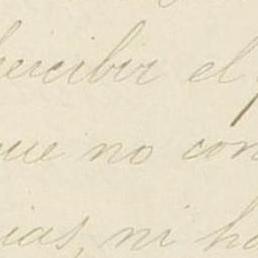 percibir el
que no con
ias, ni ha